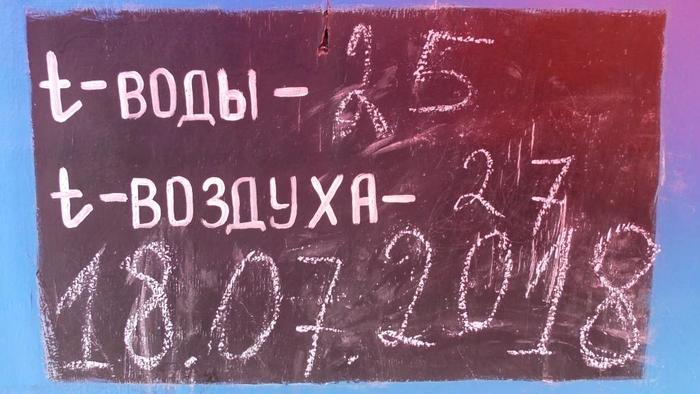 t-ВОДЫ- 25
t-ВОЗДУХА- 27
18.07.2018